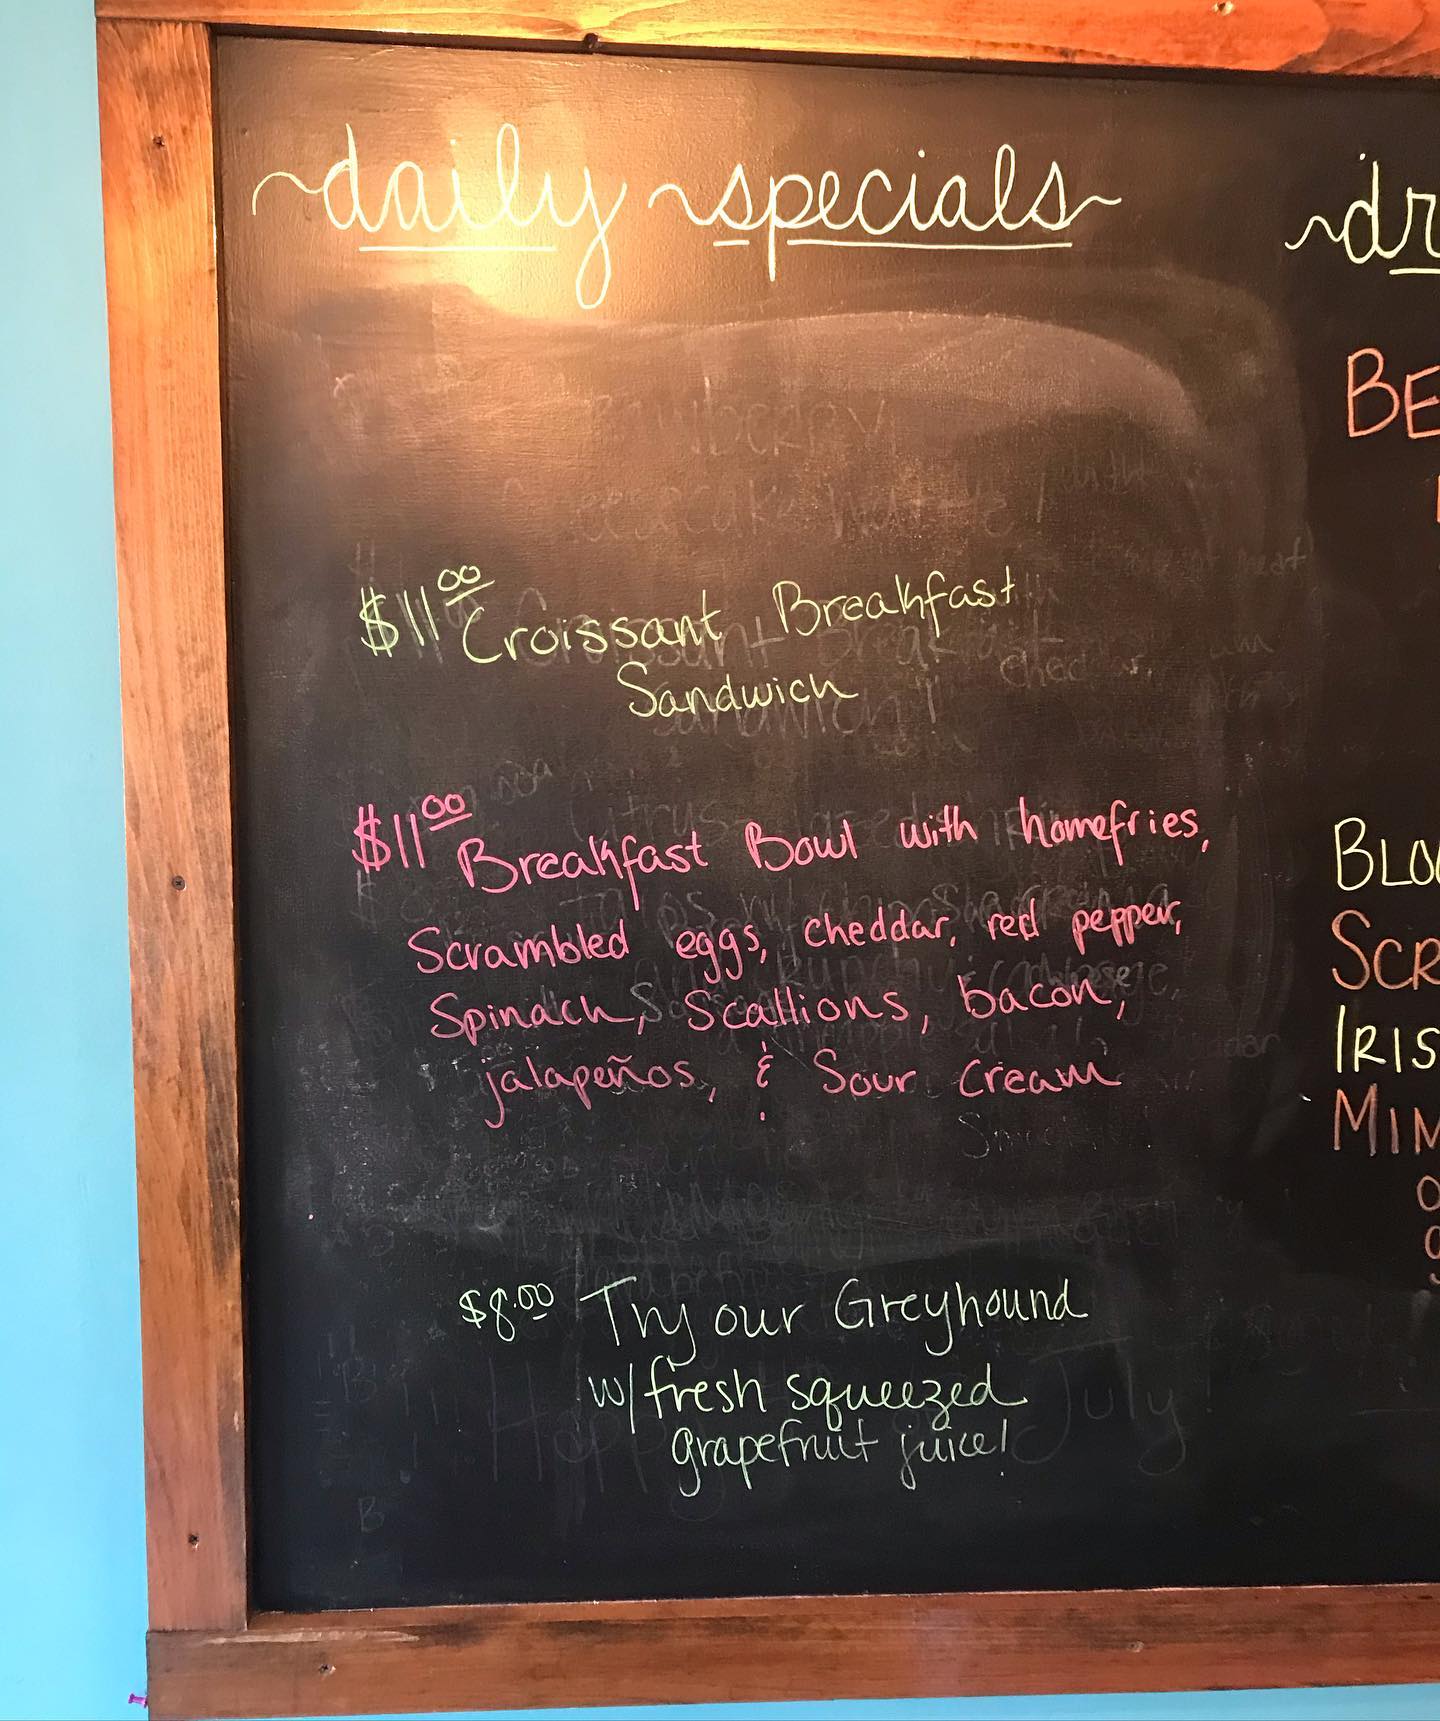 daily specials
$11.00 Croissant Breakfast
Sandwich
$11.00 Breakfast Bowl with homefries,
Scrambled eggs, cheddar, red pepper,
Spinach, Scallions, bacon,
jalapeños, & Sour cream
$8.00 Try our Greyhound
w/ fresh squeezed
grapefruit juice!
dr
BE
BLO
SCR
IRIS
MIM